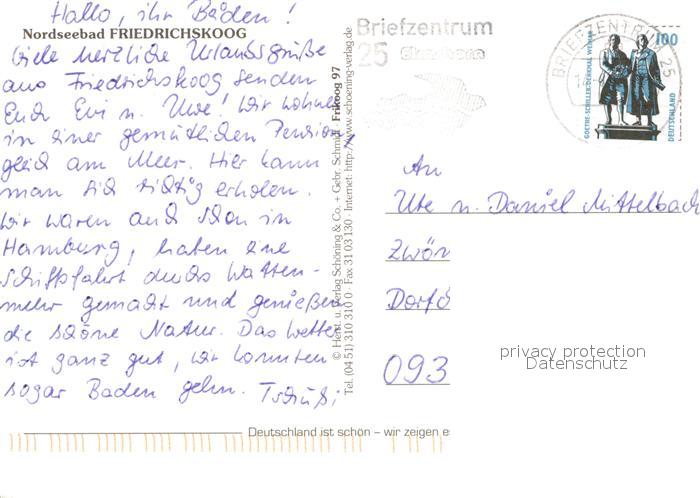 Hallo, ihr Beiden!
Nordseebad FRIEDRICHSKOOG
Viele herzliche Urlaubsgrüße
aus Friedrichskoog senden
Euch Evi u. Uwe! Wir wohnen
in einer gemütlichen Pension
gleich am Meer. Hier kann
man sich richtig erholen.
Wir waren auch schon in
Hamburg, haben eine
Schiffsfahrt durchs Watten-
meer gemacht und genießen
die schöne Natur. Das Wetter
ist ganz gut, wir konnten
sogar Baden gehn. Tschüß!
© Herst. u. Verlag Schöning & Co. + Gebr. Schmidt Frikoog 97
Tel. (04 51) 310 310 0 · Fax 31 03 130 · Internet: http://www.schoening-verlag.de
Briefzentrum
25
BRIEFZENTRUM 25
100
GOETHE-SCHILLER-DENKMAL WEIMAR
DEUTSCHLAND
An
Ute u. Daniel Mittelbach
Zwön
Dorfs
093
privacy protection
Datenschutz
Deutschland ist schön – wir zeigen e